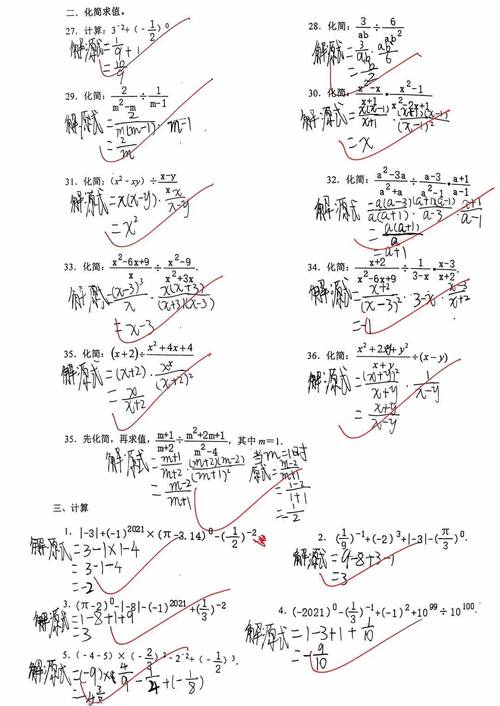 二、化简求值。
27. 计算：3⁻²+(-1/2)⁰
解：原式=1/9+1
=10/9
28. 化简：3/ab÷6/ab²
解：原式=3/ab·ab²/6
=b/2
29. 化简：2/(m²-m)÷1/(m-1)
解：原式=2/m(m-1)·m-1
=2/m
30. 化简：(x²-x)/(x+1)·(x²-1)/(x²-2x+1)
解：原式=x(x-1)/(x+1)·(x+1)(x-1)/(x-1)²
=x
31. 化简：(x²-xy)÷(x-y)/x
解：原式=x(x-y)·x/(x-y)
=x²
32. 化简：(a²-3a)/(a²+a)÷(a-3)/(a²-1)·(a+1)/(a-1)
解：原式=a(a-3)/a(a+1)·(a+1)(a-1)/(a-3)·(a+1)/(a-1)
=a(a+1)/a
=a+1
33. 化简：(x²-6x+9)/x÷(x²-9)/(x²+3x).
解：原式=(x-3)²/x·x(x+3)/(x+3)(x-3)
=x-3
34. 化简：(x+2)/(x²-6x+9)÷1/(3-x)·(x-3)/(x+2)
解：原式=(x+2)/(x-3)²·3-x·(x-3)/(x+2)
=-1
35. 化简：(x+2)÷(x²+4x+4)/x
解：原式=(x+2)·x/(x+2)²
=x/(x+2)
36. 化简：(x²+2xy+y²)/(x+y)÷(x-y)
解：原式=(x+y)²/(x+y)·1/(x-y)
=(x+y)/(x-y)
35. 先化简，再求值，(m+1)/(m+2)÷(m²+2m+1)/(m²-4)，其中m=1.
解：原式=(m+1)/(m+2)·(m+2)(m-2)/(m+1)²
=(m-2)/(m+1)
当m=1时
原式=(m-2)/(m+1)
=(1-2)/(1+1)
=-1/2
三、计算
1. |-3|+(-1)²⁰²¹×(π-3.14)⁰-(1/2)⁻²
解：原式=3-1×1-4
=3-1-4
=-2
2. (1/9)⁻¹+(-2)³+|-3|-(π/3)⁰.
解：原式=9-8+3-1
=3
3. (π-2)⁰-|-8|-(-1)²⁰²¹+(1/3)⁻²
解：原式=1-8+1+9
=3
4. (-2021)⁰-(1/3)⁻¹+(-1)²+10⁹⁹÷10¹⁰⁰.
解：原式=1-3+1+1/10
=-9/10
5. (-4-5)×(-2/3)²-2⁻²+(-1/2)³.
解：原式=(-9)×4/9-1/4+(-1/8)
=-4 3/8